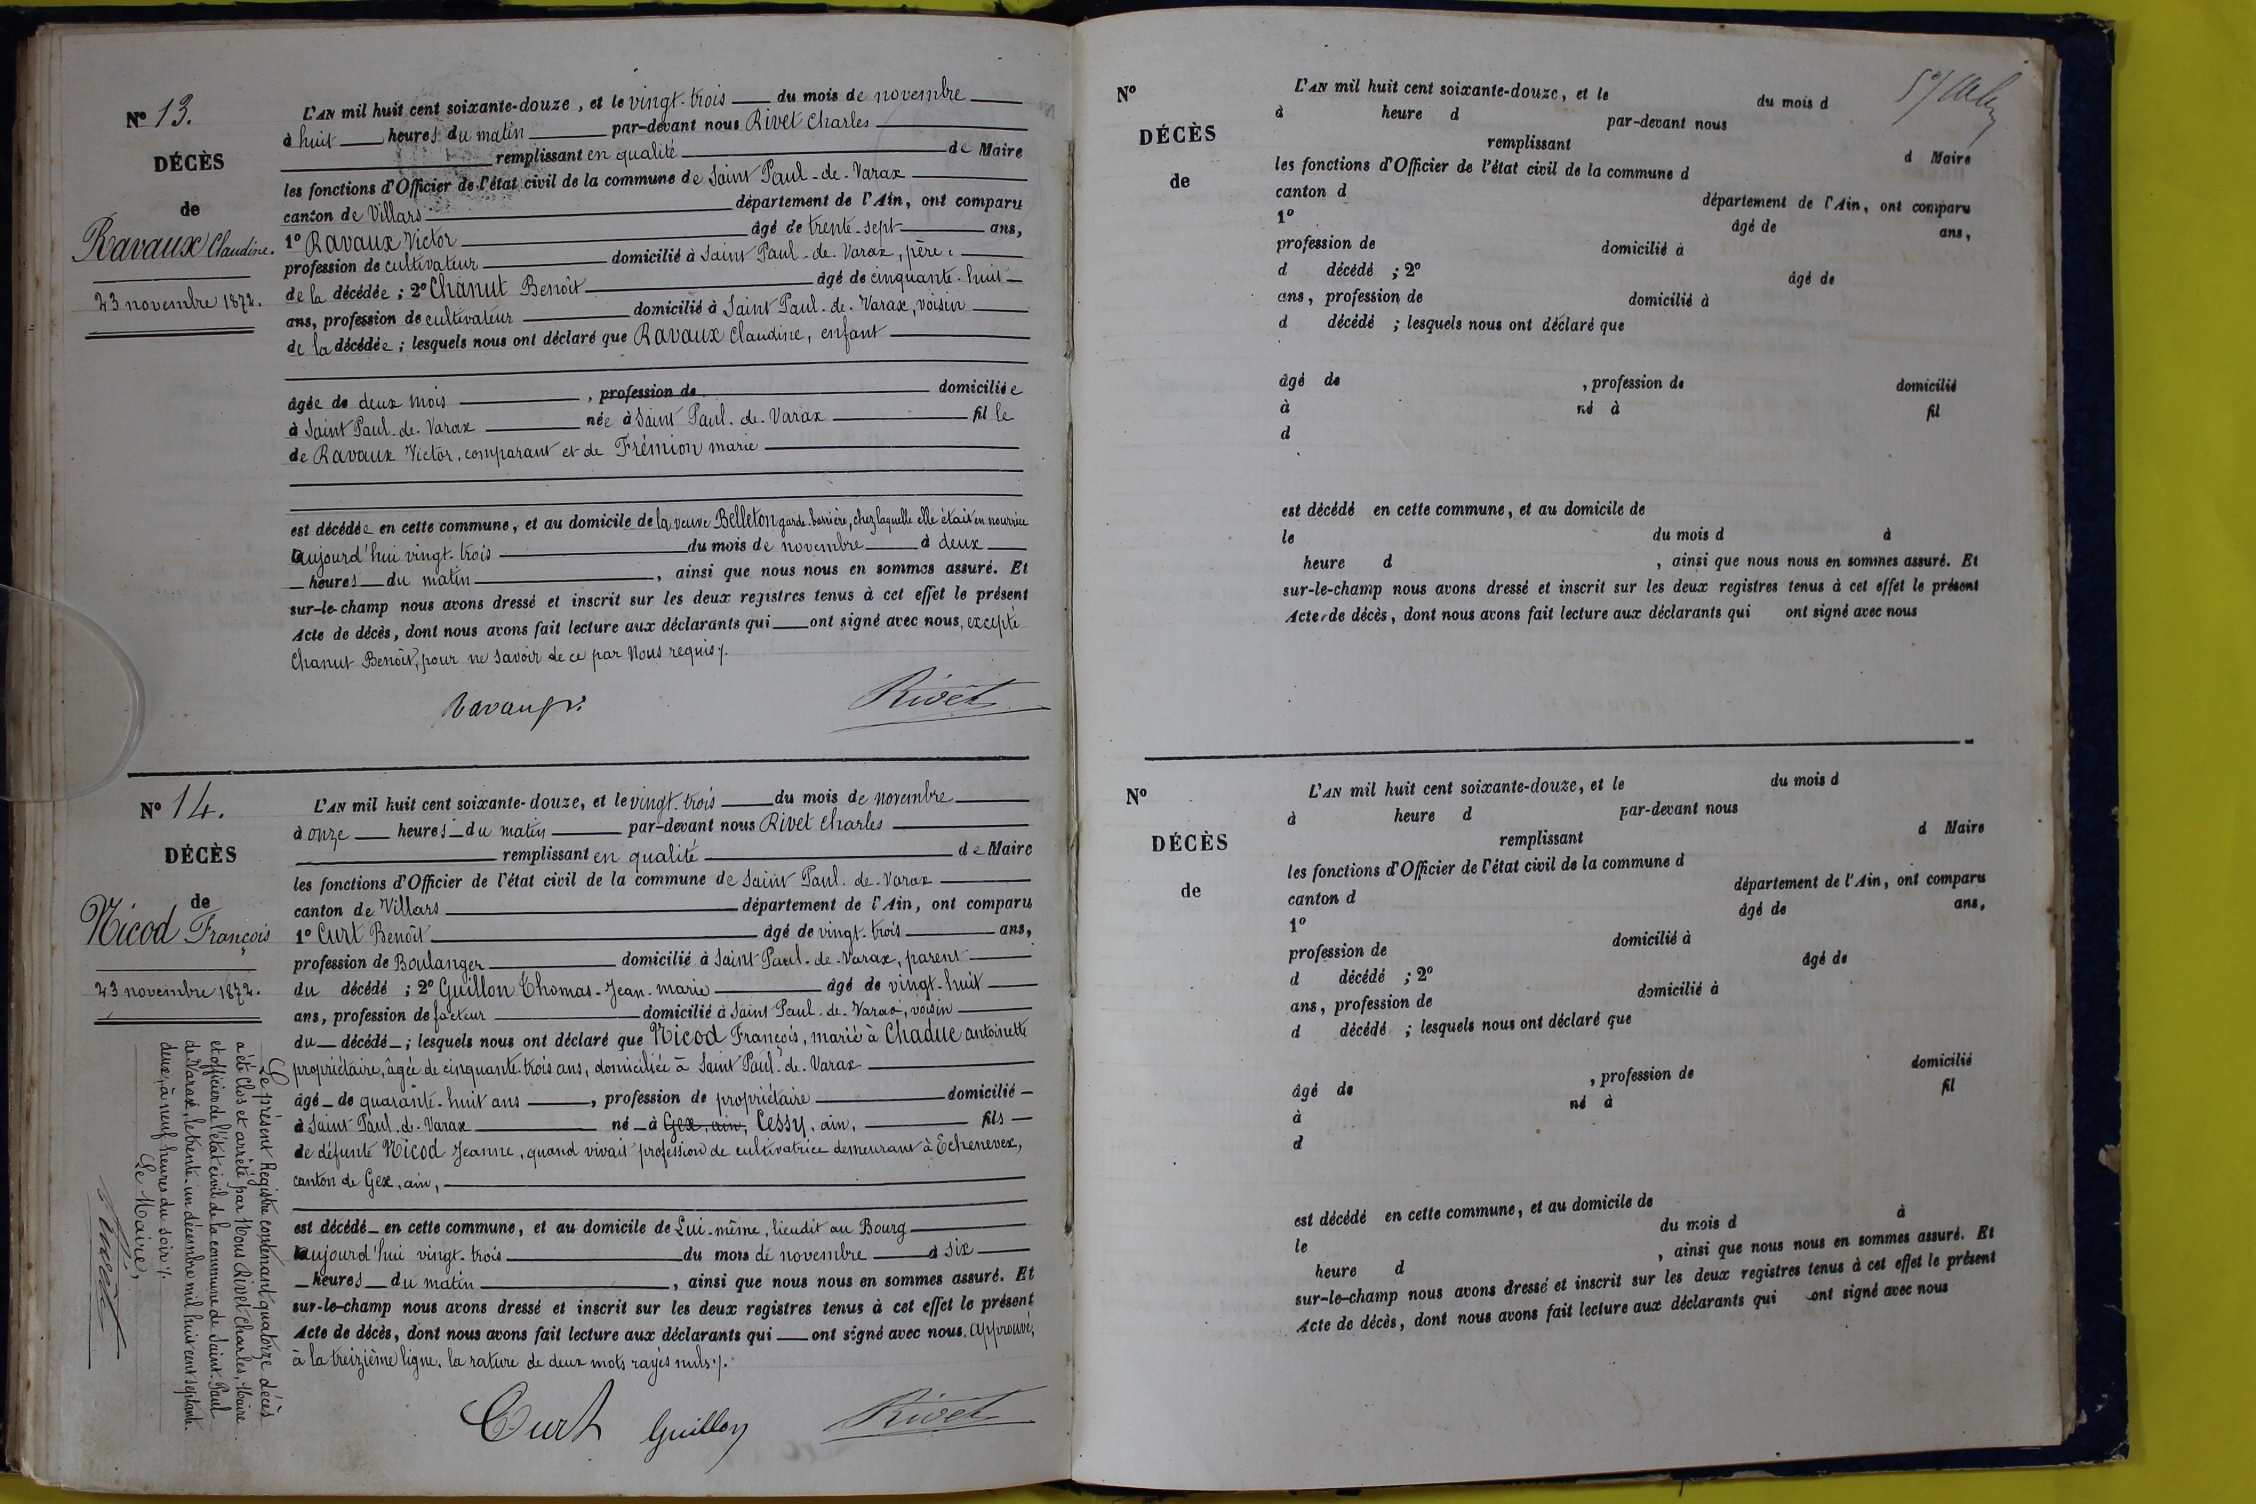 Nº 13.
DÉCÈS
de
Ravaux Claudine.
23 novembre 1872.
L'AN mil huit cent soixante-douze, et le vingt-trois du mois de novembre
à huit heures du matin par-devant nous Rivet Charles
remplissant en qualité de Maire
les fonctions d'Officier de l'état civil de la commune de Saint Paul-de-Varax
canton de Villars département de l'Ain, ont comparu
1º Ravaux Victor âgé de trente-sept ans,
profession de cultivateur domicilié à Saint Paul-de-Varax, père
de la décédée ; 2º Chanut Benoît âgé de cinquante-huit
ans, profession de cultivateur domicilié à Saint Paul-de-Varax, voisin
de la décédée ; lesquels nous ont déclaré que Ravaux Claudine, enfant
âgée de deux mois , profession de domiciliée
à Saint Paul-de-Varax née à Saint Paul-de-Varax fille
de Ravaux Victor, comparant et de Frémion marie
est décédée en cette commune, et au domicile de la veuve Belleton garde-barrière, chez laquelle elle était en nourrice
aujourd'hui vingt-trois du mois de novembre à deux
heures du matin , ainsi que nous nous en sommes assuré. Et
sur-le-champ nous avons dressé et inscrit sur les deux registres tenus à cet effet le présent
Acte de décès, dont nous avons fait lecture aux déclarants qui ont signé avec nous, excepté
Chanut Benoît, pour ne savoir de ce par Nous requis /.
Ravaux v. Rivet
Nº 14.
DÉCÈS
de
Nicod François
23 novembre 1872.
L'AN mil huit cent soixante-douze, et le vingt-trois du mois de novembre
à onze heures du matin par-devant nous Rivet Charles
remplissant en qualité de Maire
les fonctions d'Officier de l'état civil de la commune de Saint Paul-de-Varax
canton de Villars département de l'Ain, ont comparu
1º Curt Benoît âgé de vingt-trois ans,
profession de Boulanger domicilié à Saint Paul-de-Varax, parent
du décédé ; 2º Guillon Thomas-Jean-marie âgé de vingt-huit
ans, profession de facteur domicilié à Saint Paul-de-Varax, voisin
du décédé ; lesquels nous ont déclaré que Nicod François, marié à Chaduc antoinette
propriétaire, âgée de cinquante-trois ans, domiciliée à Saint Paul-de-Varax
âgé de quarante-huit ans , profession de propriétaire domicilié
à Saint Paul-de-Varax né à Gex, ain, Cessy, ain, fils
de défunte Nicod Jeanne, quand vivait profession de cultivatrice demeurant à Echenevex,
canton de Gex, ain,
est décédé en cette commune, et au domicile de Lui-même, lieudit au Bourg
aujourd'hui vingt-trois du mois de novembre à six
heures du matin , ainsi que nous nous en sommes assuré. Et
sur-le-champ nous avons dressé et inscrit sur les deux registres tenus à cet effet le présent
Acte de décès, dont nous avons fait lecture aux déclarants qui ont signé avec nous. approuvé,
à la treizième ligne, la rature de deux mots rayés nuls /.
Curt Guillon Rivet
Le présent Registre contenant quatorze décès
a été clos et arrêté par Nous Rivet Charles, Maire
et officier de l'état civil de la commune de Saint-Paul
de-Varax, le trente-un décembre mil huit cent septante-
deux, à neuf heures du soir /.
Le Maire,
Rivet
Nº
DÉCÈS
de
L'AN mil huit cent soixante-douze, et le du mois d
à heure d par-devant nous
remplissant d Maire
les fonctions d'Officier de l'état civil de la commune d
canton d département de l'Ain, ont comparu
1º âgé de ans,
profession de domicilié à
d décédé ; 2º âgé de
ans, profession de domicilié à
d décédé ; lesquels nous ont déclaré que
âgé de , profession de domicilié
à né à fil
d
est décédé en cette commune, et au domicile de
le du mois d à
heure d , ainsi que nous nous en sommes assuré. Et
sur-le-champ nous avons dressé et inscrit sur les deux registres tenus à cet effet le présent
Acte de décès, dont nous avons fait lecture aux déclarants qui ont signé avec nous
Nº
DÉCÈS
de
L'AN mil huit cent soixante-douze, et le du mois d
à heure d par-devant nous
remplissant d Maire
les fonctions d'Officier de l'état civil de la commune d
canton d département de l'Ain, ont comparu
1º âgé de ans,
profession de domicilié à
d décédé ; 2º âgé de
ans, profession de domicilié à
d décédé ; lesquels nous ont déclaré que
âgé de , profession de domicilié
à né à fil
d
est décédé en cette commune, et au domicile de
le du mois d à
heure d , ainsi que nous nous en sommes assuré. Et
sur-le-champ nous avons dressé et inscrit sur les deux registres tenus à cet effet le présent
Acte de décès, dont nous avons fait lecture aux déclarants qui ont signé avec nous